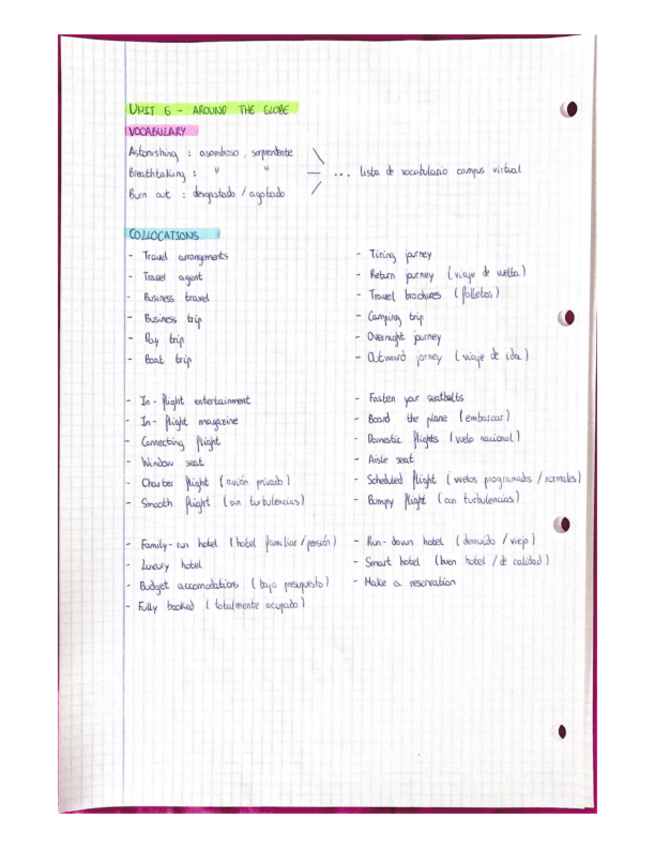 UNIT 6 - AROUND THE GLOBE
VOCABULARY
Astonishing : asombroso, sorprendente
Breathtaking : " "
Burn out : desgastado / agotado
... lista de vocabulario campus virtual
COLLOCATIONS
- Travel arrangements
- Travel agent
- Business travel
- Business trip
- Day trip
- Boat trip
- Tiring journey
- Return journey (viaje de vuelta)
- Travel brochures (folletos)
- Camping trip
- Overnight journey
- Outward jorney (viaje de ida)
- In-flight entertainment
- In-flight magazine
- Connecting flight
- Window seat
- Charter flight (avión privado)
- Smooth flight (sin turbulencias)
- Fasten your seatbelts
- Board the plane (embarcar)
- Domestic flights (vuelo nacional)
- Aisle seat
- Scheduled flight (vuelos programados / normales)
- Bumpy flight (con turbulencias)
- Family-run hotel (hotel familiar / pensión)
- Luxury hotel
- Budget accomodations (bajo presupuesto)
- Fully booked (totalmente ocupado)
- Run-down hotel (derruido / viejo)
- Smart hotel (buen hotel / de calidad)
- Make a reservation